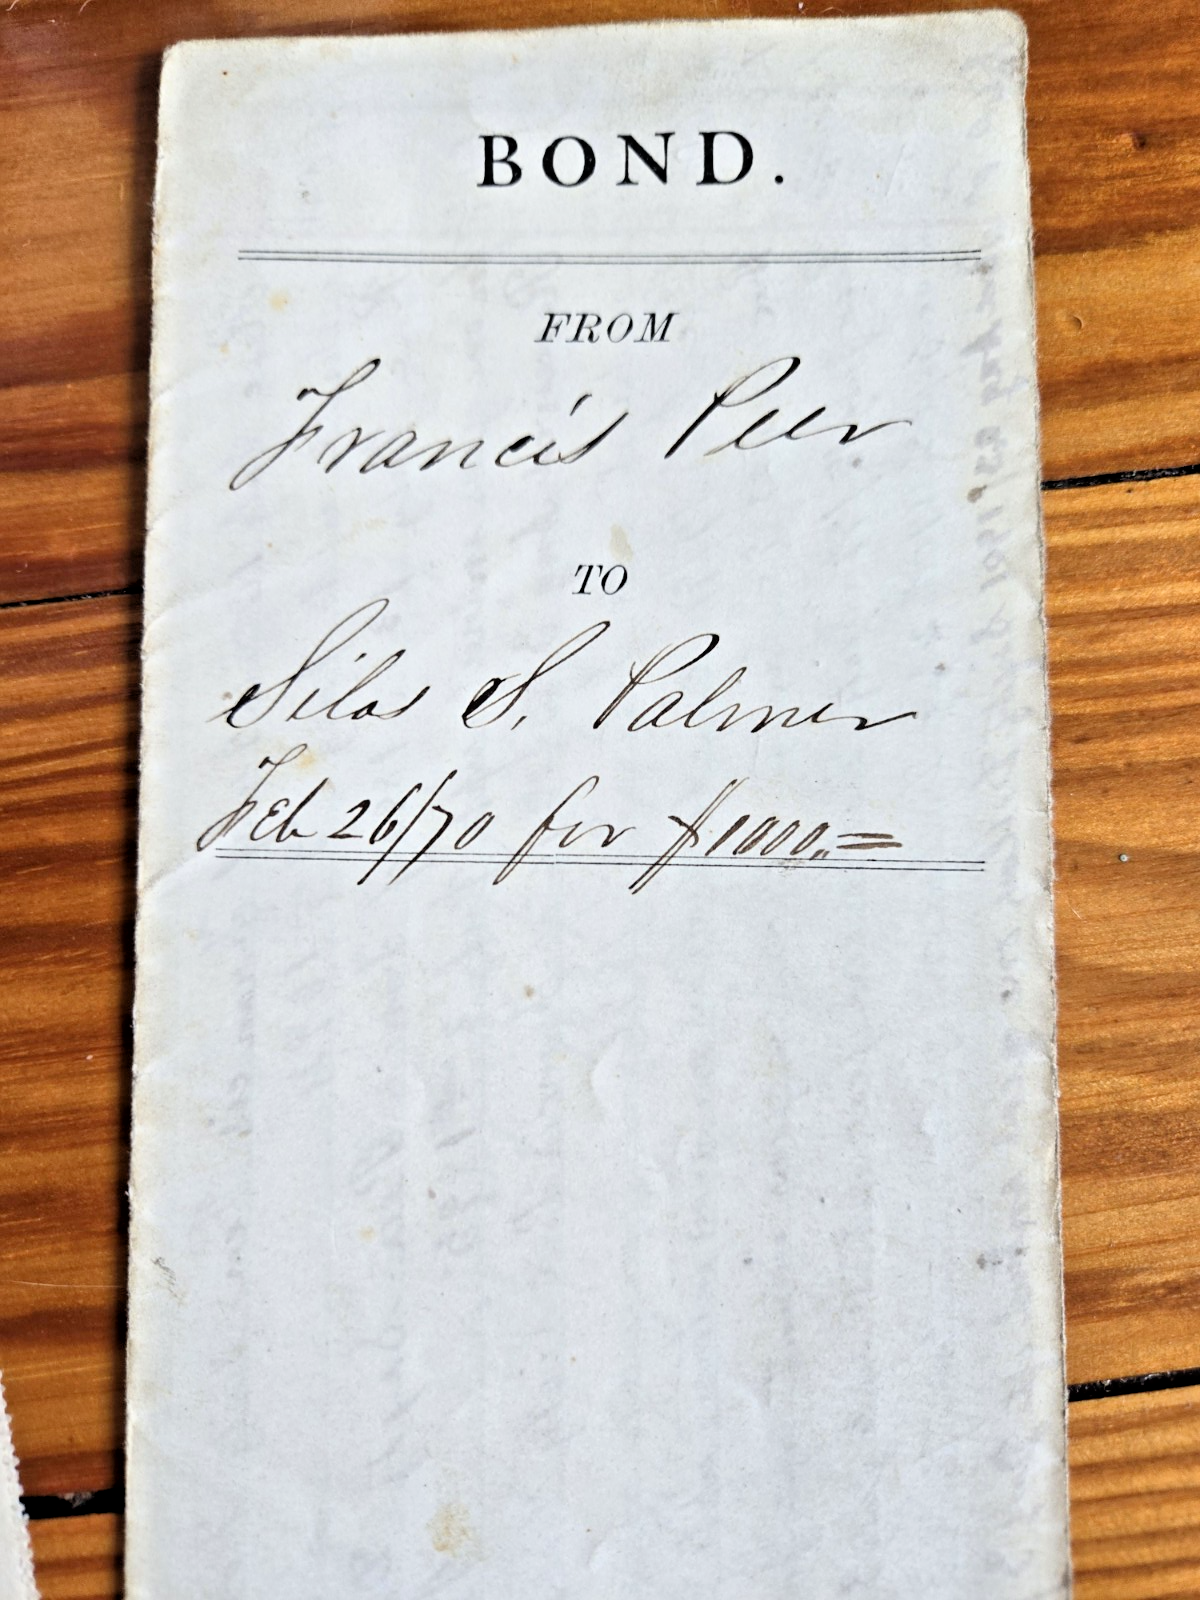 BOND.
FROM
Francis Peer
TO
Silas S. Palmer
Feb 26/70 for $1000.=